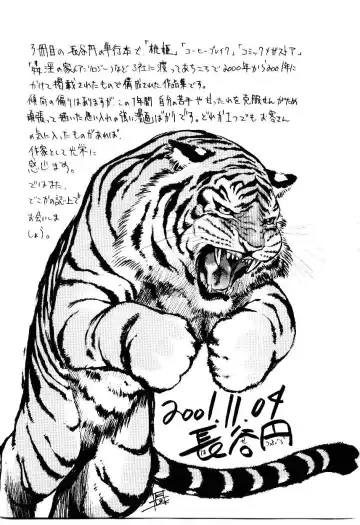 3冊目の長谷円の単行本で、「桃極」「コーヒーブレイク」「コミックメガストア」
「姦淫の家(アンソロジー)」など3社に渡ってあちこちで2000年から2001年に
かけて掲載されたもので構成された作品集です。
傾向の偏りはありますが、この1年間自分の苦手や甘ったれを克服せんがため
頑張って描いた思い入れの強い漫画ばかりです。どれか1つでもお客さん
の気に入ったものがあれば、
作家として光栄に
感じます。
ではまた、
どこかの誌上で
お会いしま
しょう。
2001.11.04
長谷円